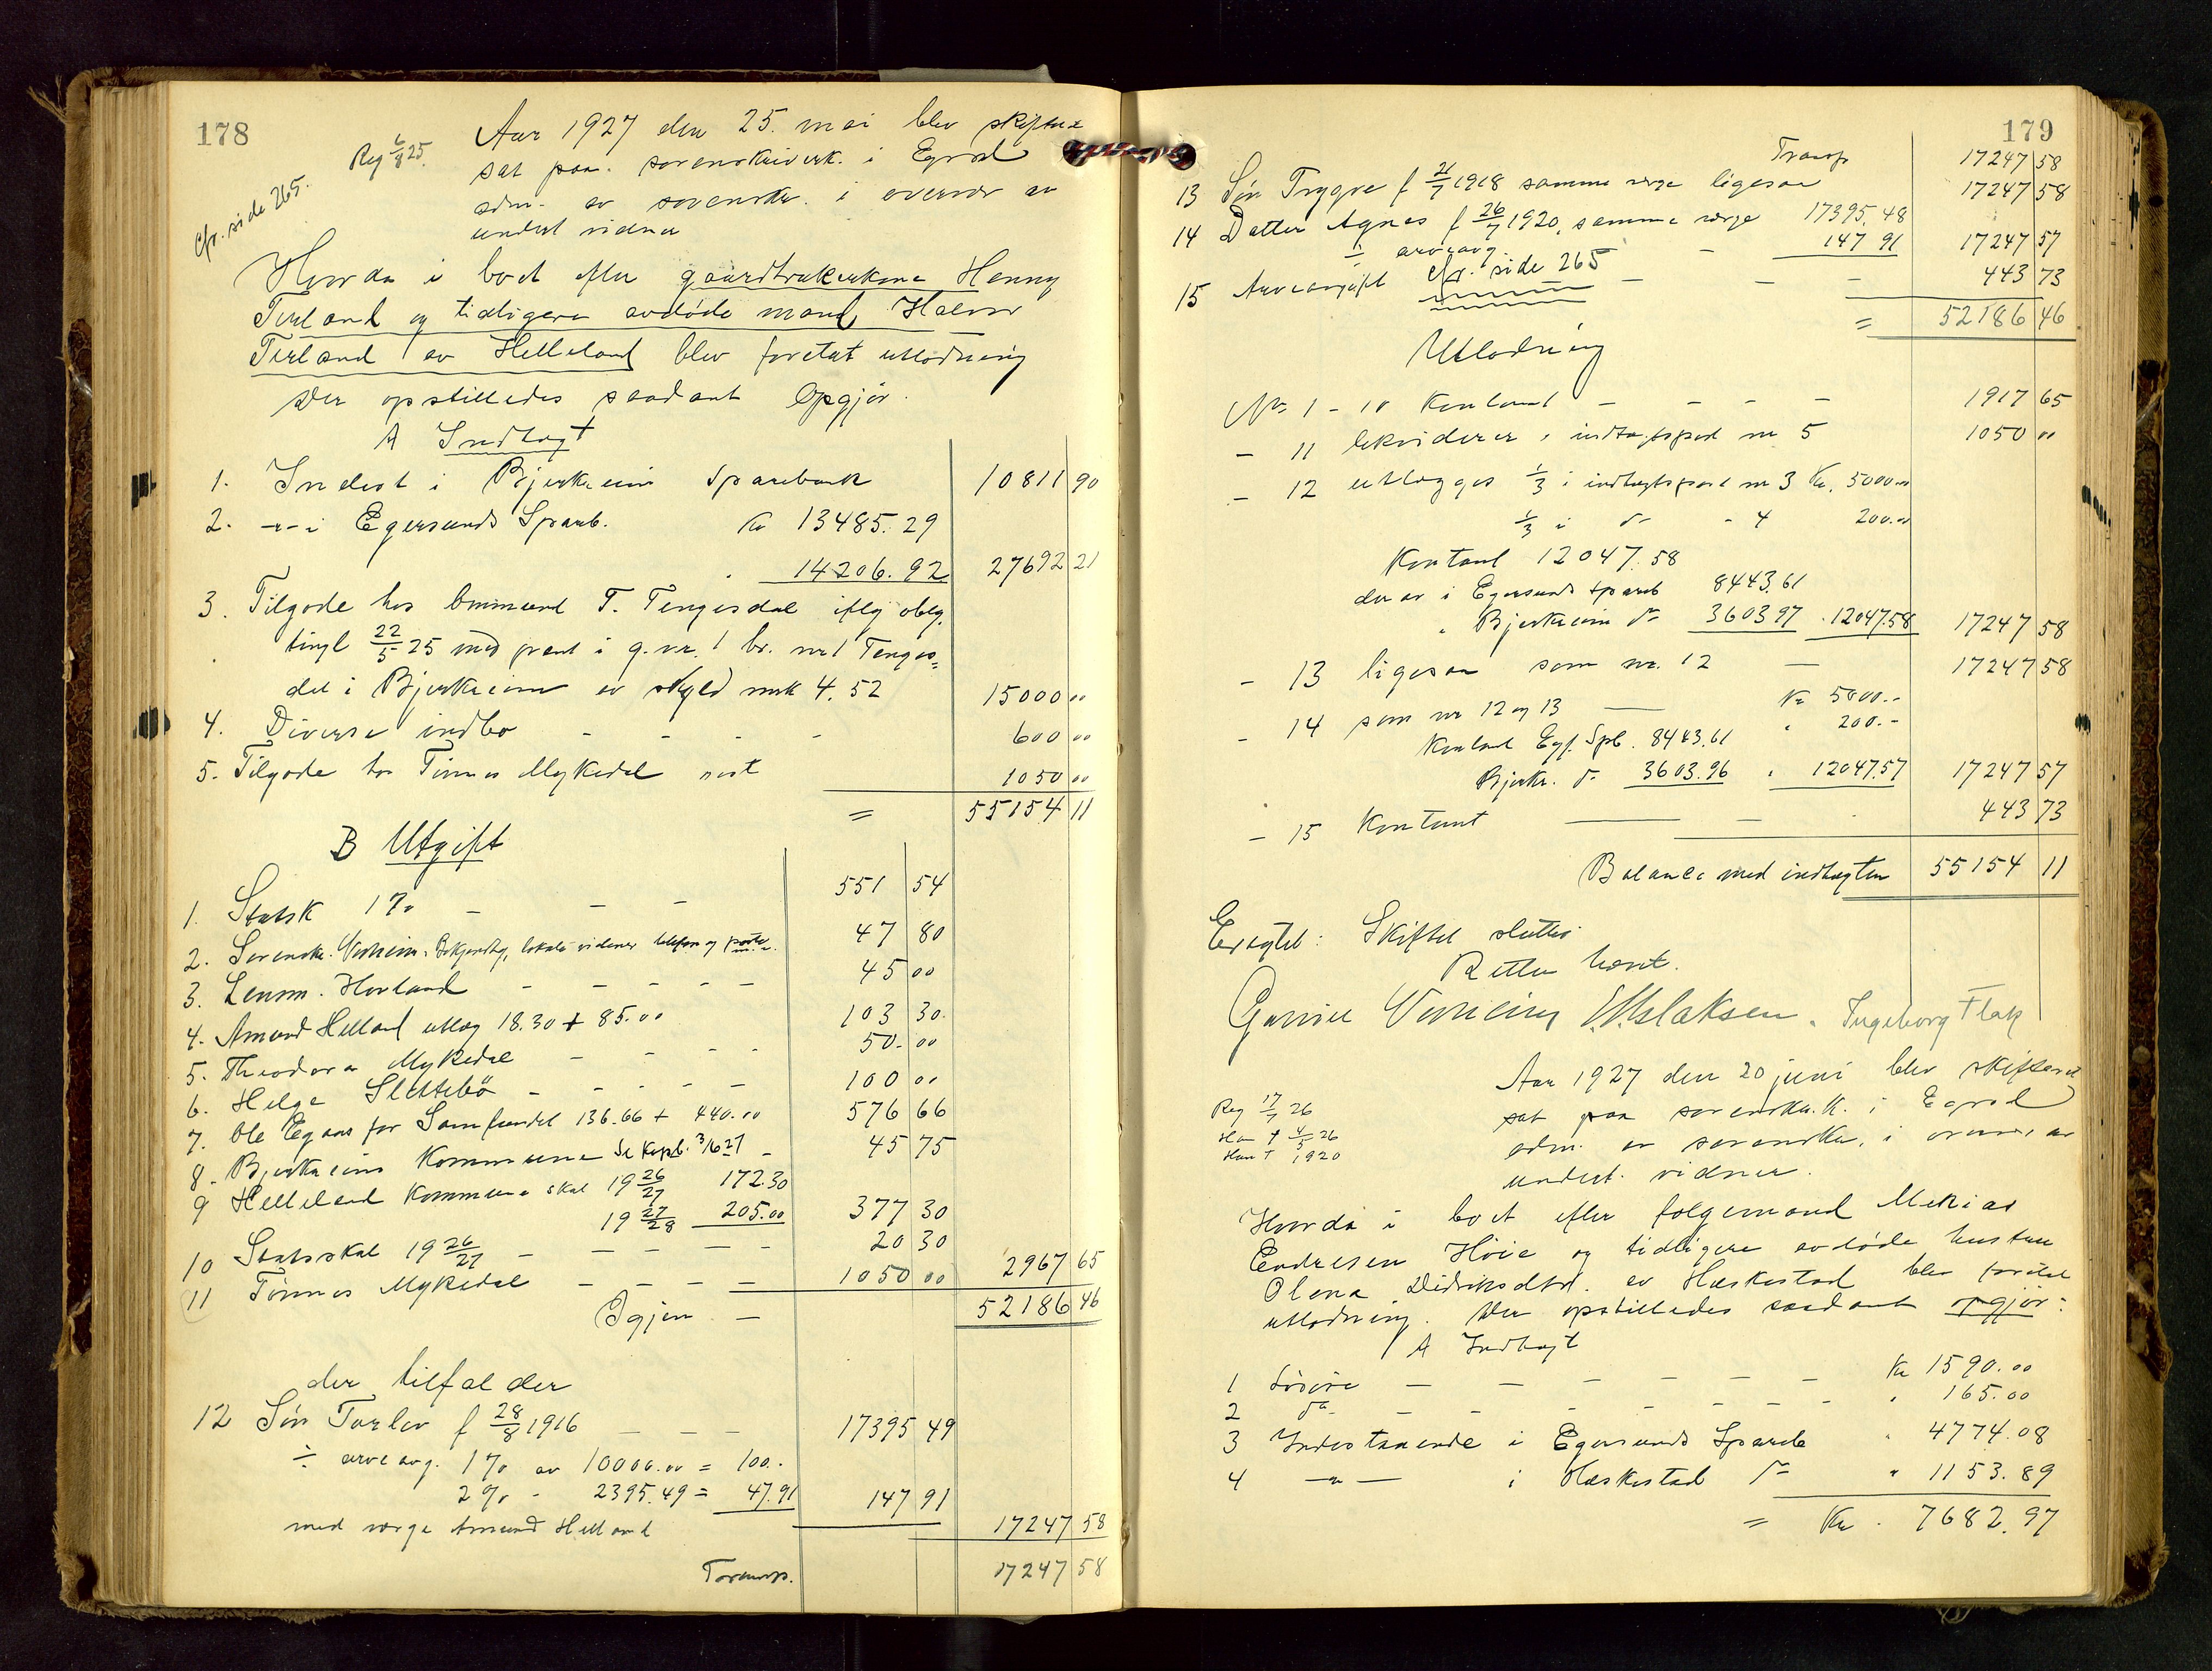 178
Reg 6/8 25.
cfr. side 265.
Aar 1927 den 25. mai blev skifteret
sat paa sorenskriverk. i Egrsd
adm. av sorenskr. i overvær av
undert vidner
Hvorda i boet efter gaardbrukerkone Henny
Terland og tidligere avdöde mand, Halvor
Terland av Helleland blev foretat utlodning
Der opstilledes saadant Opgjör.
A Indtægt
1. Indest i Bjerkreim Sparebank 10811 90
2. -"- i Egersunds Spareb. Kr 13485.29
14206.92 27692 21
3. Tilgode hos Emmund T. Tengesdal iflg oblg.
tingl 22/5 25 med pant i g.nr. 1 br. nr 1 Tenges=
dal i Bjerkreim av skyld mrk 4.52 15000 00
4. Diverse indbo - - - - 600 00
5. Tilgode hos Tönnes Mykedal nest 1050 00
= 55154 11
B Utgift
1. Statsk 1% - - - 551 54
2. Sorenskr. Vinheim, Bekjendtg, lokale vidner telefon og porto m.m. 47 80
3. Lensm. Hovland - - - - - 45 00
4. Amund Helland utlæg 18.30 + 85.00 103 30.
5. Theodora Mykedal - - - - 50.00
6. Helge Slettebö - - - - - 100 00
7. Ole Egaas for Samfundet 136.66 + 440.00 576 66
8. Bjerkreims Kommune Se kopb. 3/6 27 - 45 75
9 Helleland Kommune skat 19 26/27 172.30
19 27/28 205.00 377 30
10 Statsskat 19 26/27 - - - - - 20 30
11 Tönnes Mykedal - - - - 1050 00 2967 65
Igjen - 52186 46
der tilfalder
12 Sön Torlev f 28/8 1916 - - - 17395 49
÷ arveavg. 1% av 10000.00 = 100.
2% - 2395.49 = 47.91 147 91
med værge Amund Helland 17247 58
Transp. 17247 58
179
Transp 17247 58
13 Sön Trygve f 21/7 1918 samme værge ligesaa 17247 58
14 Datter Agnes f 26/7 1920, samme værge 17395.48
÷ arveavg - 147 91 17247 57
15 Arveavgift cfr. side 265 - - - 443 73
= 52186 46
Utlodning
Nr. 1 - 10 Kontant - - - - 1917 65
- 11 likviderer i indtægtspost nr 5 1050 00
- 12 utlægges 1/3 i indtægtspost nr 3 Kr. 5000.00
1/3 i do - 4 200.00
Kontant 12047.58
derav i Egersunds Spareb 8443.61
" Bjerkreim do 3603 97 . 12047.58 17247 58
- 13 ligesaa som nr. 12 - 17247 58
- 14 som nr 12 og 13 - Kr 5000.-
" 200.-
Kontant Eg. Spb. 8443.61
Bjerkr. do 3603.96 " 12047.57 17247 57
- 15 Kontant - - 443 73
Balance med indtægten 55154 11
Eragtet: Skiftet sluttes.
Retten hævet.
Vinheim Aslaksen. Ingeborg Flak
Reg 17/7 26
Han † 4/5 26
Hun † 1920
Aar 1927 den 20 juni blev skifteret
sat paa sorenskr.k. i Egrsd
adm. av sorenskr. i overvær av
undert. vidner.
Hvorda i boet efter folgemand Mekias
Endresen Höie og tidligere avdöde hustru
Olena Didriksdtr. av Heskestad blev foretat
utlodning. Der opstilledes saadant opgjör:
A Indtægt
1 Lösöre - - - - - - Kr 1590.00
2 do - - - - - - - " 165.00
3 Indestaaende i Egersunds Spareb " 4774.08
4 -"- i Heskestad do " 1153.89
= Kr. 7682.97